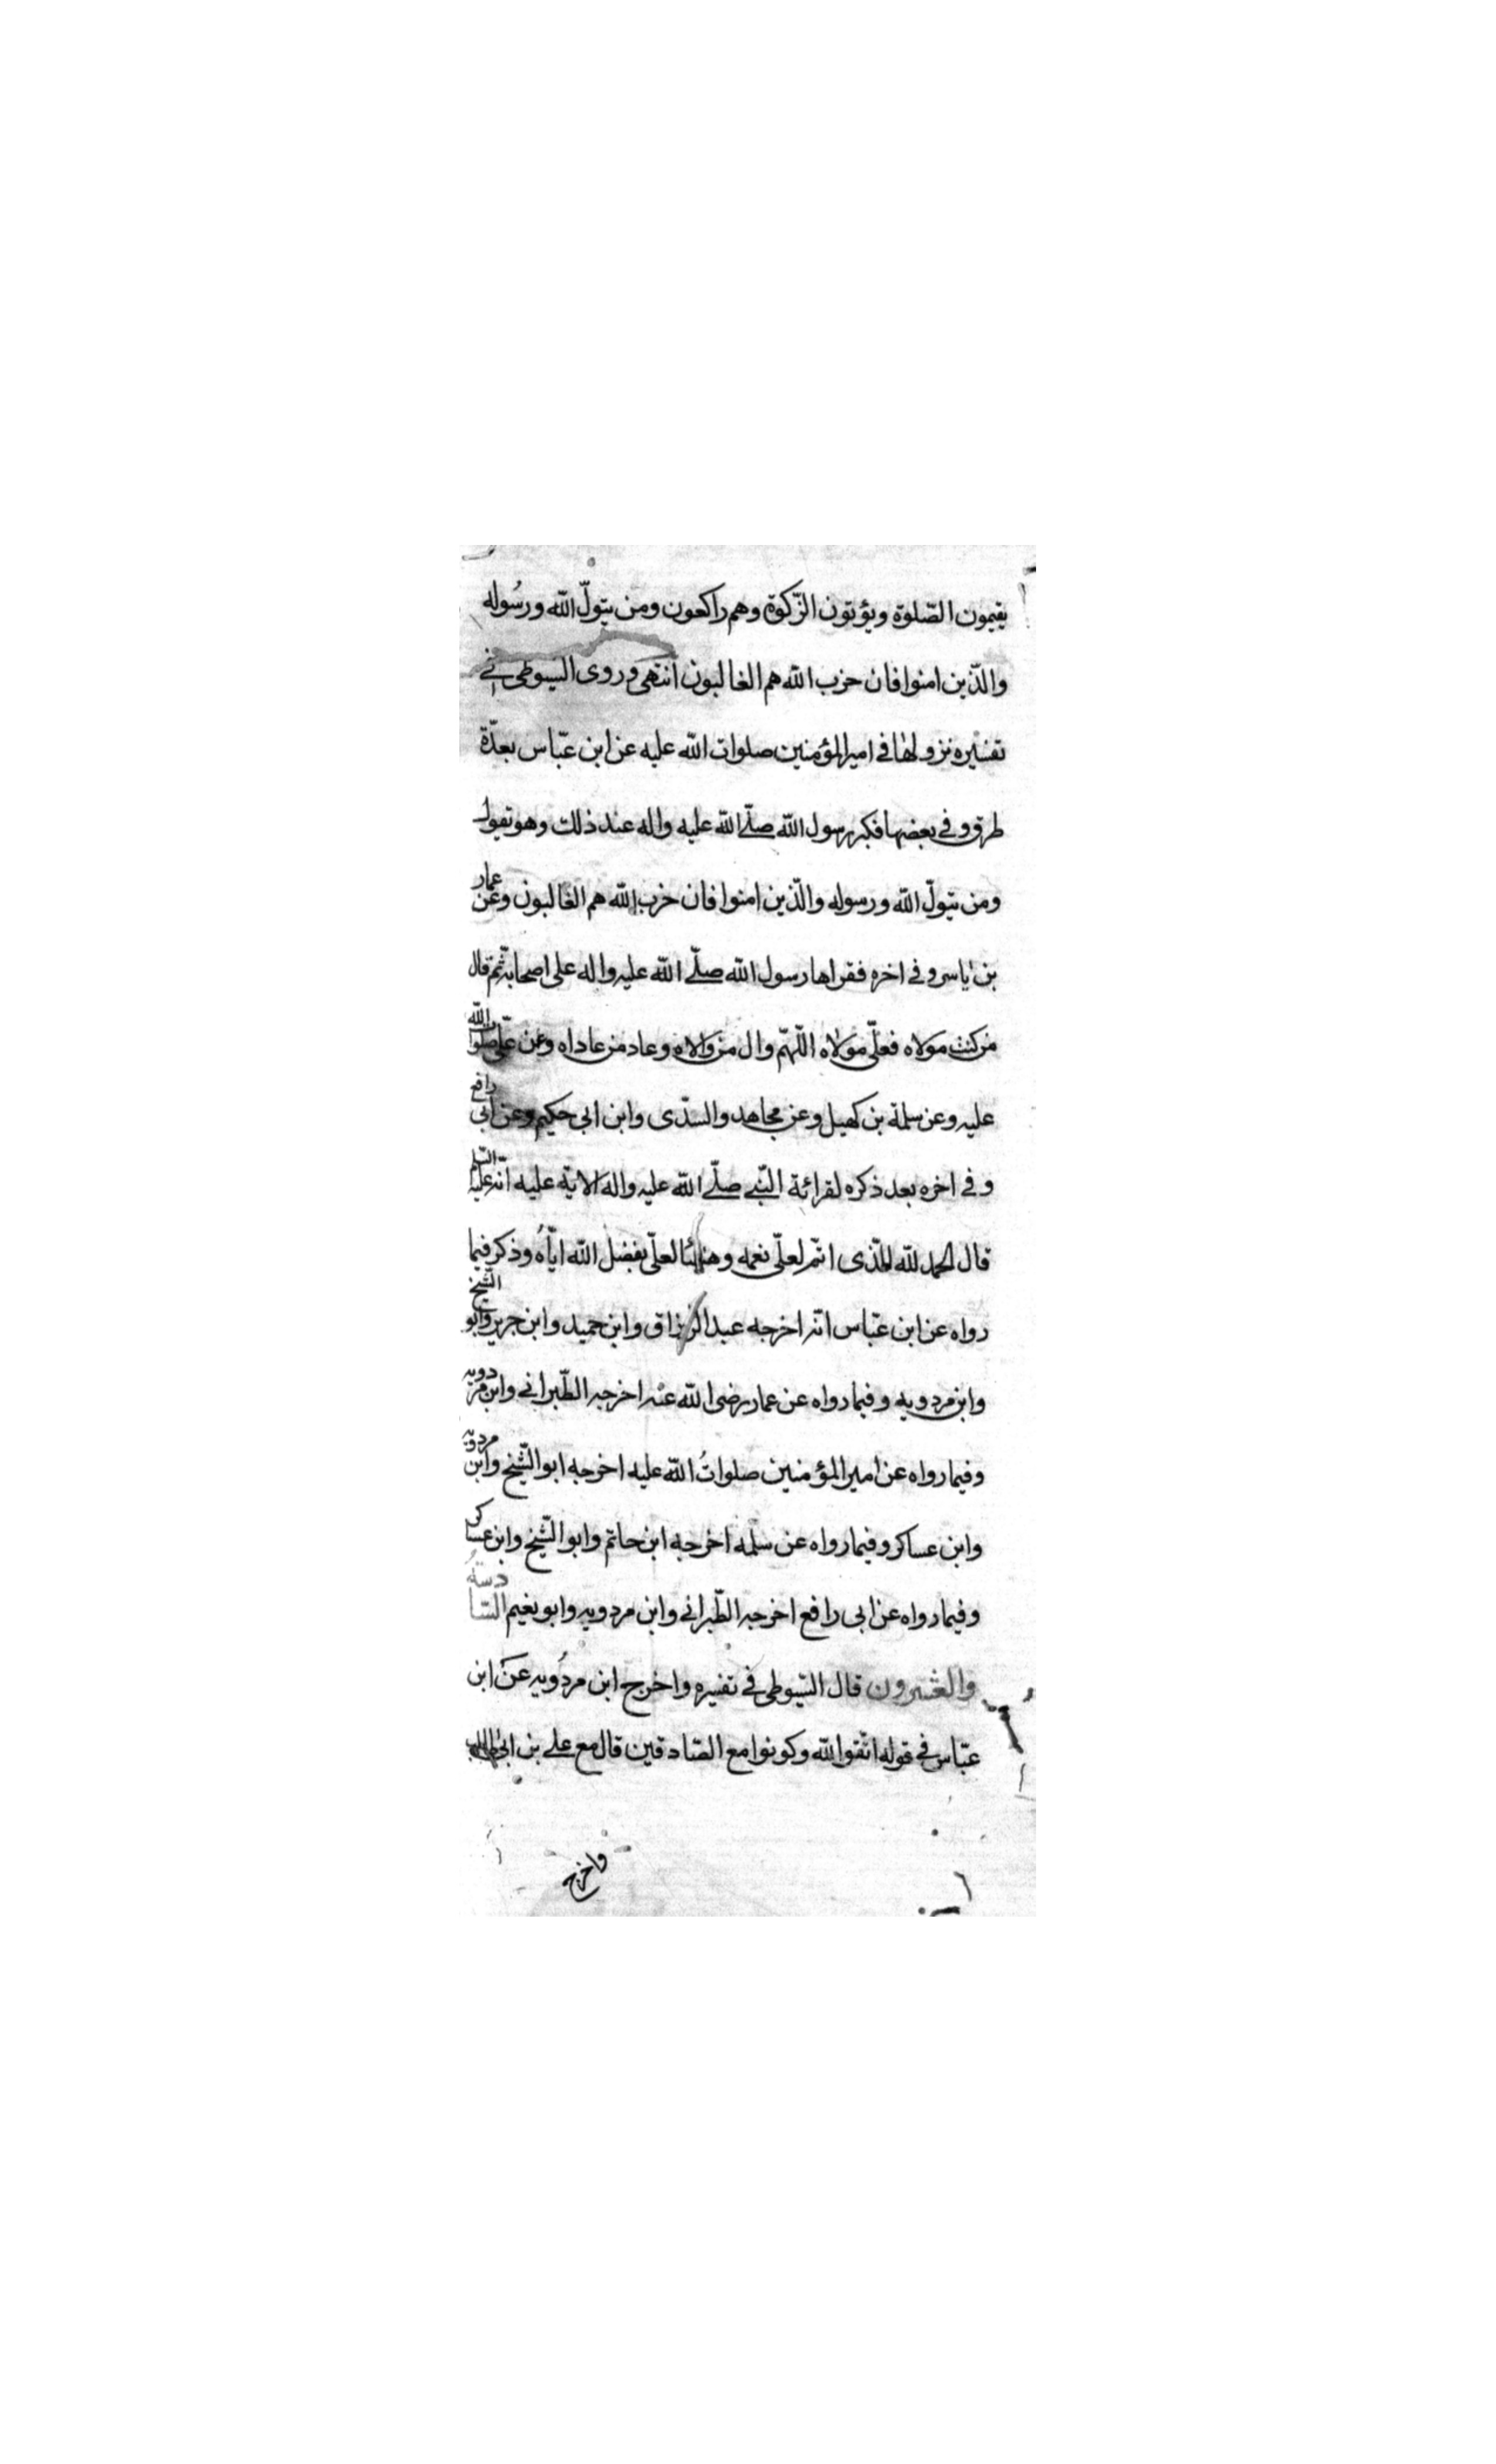 يقيمون الصّلوة ويؤتون الزّكوة وهم راكعون ومن يتولّ الله ورسُوله
والذّين امنوا فان حزب الله هم الغالبون انتهى وروى السيوطى فى
تفسيره نزولها فى امير المؤمنين صلوات الله عليه عن ابن عبّاس بعدّة
طرق وفى بعضها فكبر رسول الله صلّى الله عليه واله عند ذلك وهو يقول
ومن يتولّ الله ورسوله والذّين امنوا فان حزب الله هم الغالبون وعن عمار
بن ياسر وفى اخره فقراها رسول الله صلّى الله عليه واله على اصحابه ثم قال
من كنت مولاه فعلّى مولاه اللّهمّ وال من والاه وعاد من عاداه وعن علّى صلوات الله
عليه وعن سلمة بن كهيل وعن مجاهد والسدّى وابن ابى حكيم وعن ابى رافع
وفى اخره بعد ذكره لقرائة النّبى صلّى الله عليه واله الاية عليه انّه عليه السّلم
قال الحمد للّه الذّى اتمّ لعلّى نعمه وهنيئا لعلّى بفضل الله ايّاه وذكر فيما
رواه عن ابن عبّاس انّه اخرجه عبد الرزاق وابن حميد وابن جرير وابو الشّيخ
وابن مردويه وفيما رواه عن عمار رضى الله عنه اخرجه الطّبرانى وابن مردويه
وفيما رواه عن امير المؤمنين صلواتُ الله عليه اخرجه ابو الشّيخ وابن مردويه
وابن عساكر وفيما رواه عن سلمه اخرجه ابن حاتم وابو الشّيخ وابن عساكر
وفيما رواه عن ابى رافع اخرجه الطّبرانى وابن مردويه وابو نعيم السّادسةُ
والعشرون قال السّيوطى فى تفسيره واخرج ابن مردُويه عن ابن
عبّاس فى قوله اتّقوا الله وكونوا مع الصّادقين قال مع على بن ابى طالب
واخرج